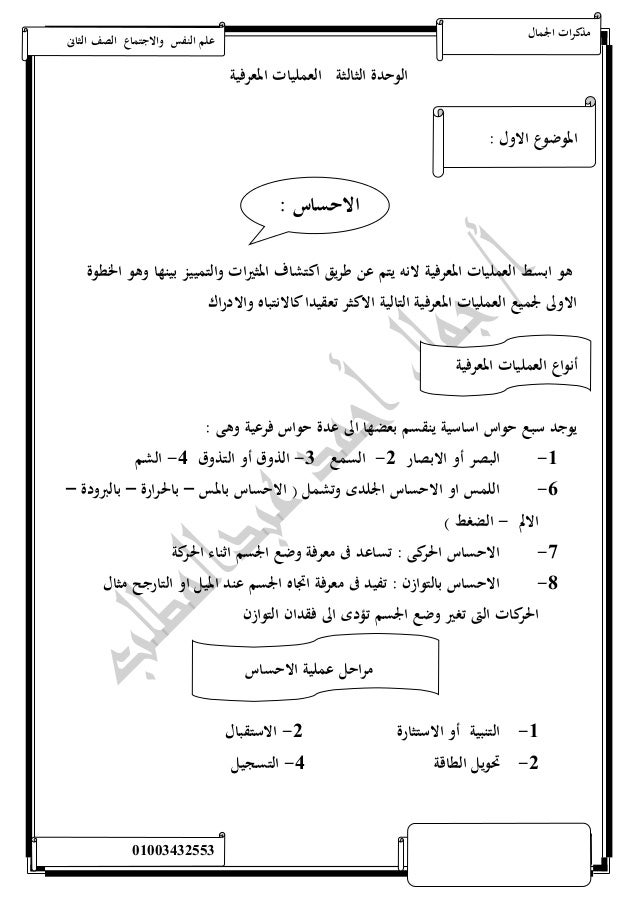 مذكرات الجمال
علم النفس والاجتماع الصف الثانى
الوحدة الثالثة العمليات المعرفية
الموضوع الاول :
الاحساس :
هو ابسط العمليات المعرفية لانه يتم عن طريق اكتشاف المثيرات والتمييز بينها وهو الخطوة
الاولى لجميع العمليات المعرفية التالية الاكثر تعقيدا كالانتباه والادراك
أنواع العمليات المعرفية
يوجد سبع حواس اساسية ينقسم بعضها الى عدة حواس فرعية وهى :
1- البصر أو الابصار 2- السمع 3- الذوق أو التذوق 4- الشم
6- اللمس او الاحساس الجلدى وتشمل ( الاحساس بالمس – بالحرارة – بالبرودة –
الالم – الضغط )
7- الاحساس الحركى : تساعد فى معرفة وضع الجسم اثناء الحركة
8- الاحساس بالتوازن : تفيد فى معرفة اتجاه الجسم عند الميل او التارجح مثال
الحركات التى تغير وضع الجسم تؤدى الى فقدان التوازن
مراحل عملية الاحساس
1- التنبية أو الاستثارة 2- الاستقبال
2- تحويل الطاقة 4- التسجيل
01003432553
أ/ جمال أحمد عبدالمطلب